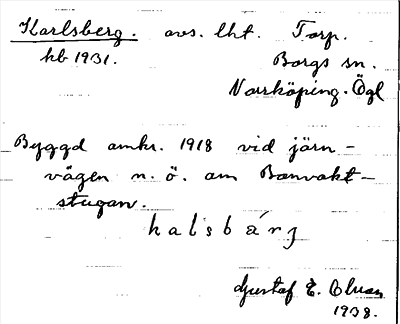 Karlsberg. avs. lht. Torp.
hb 1931. Borgs sn.
Norrköping. Ögl
Byggd omkr. 1918 vid järn-
vägen n. ö. om Banvakt-
stugan.
kalsbárj
Gustaf E.
1938.